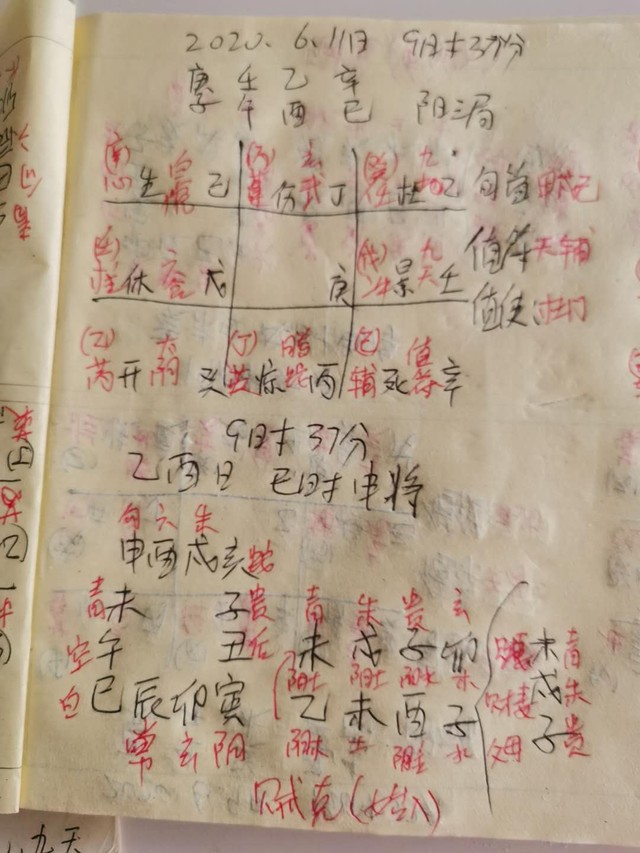 2020.6.11日 9时37分
庚 壬 乙 辛
子 午 酉 巳 阳三局
心 生 白虎 己 (丙) 伤 玄武 丁 杜 九地 乙 旬首 甲戌己
值符 天辅
柱 休 六合 戊 庚 (戊) 冲 景 九天 壬
值使 杜门
(乙) 芮 开 太阴 (丁) 英 惊 螣蛇 丙 (己) 辅 死 值符 辛
9时37分
乙酉日 巳时申将
勾 六 朱
申酉戌亥 蛇
青 未 子 贵 青 朱 贵 玄
空 午 丑 后 未 戌 子 卯 未 青
阳土 阳土 阳水 木 财 戌 朱
白 巳 辰 卯 寅 乙 未 酉 子 父母 子 贵
常 玄 阴 阴木 土 水
贼克(始入)